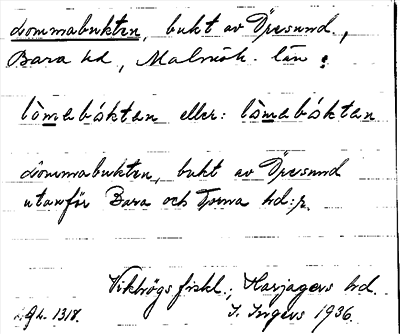 Lommabukten, bukt av Öresund,
Bara hd, Malmöh. län:
lòmabóktan eller: lòmabóktan
Lommabukten, bukt av Öresund
utanför Bara och Torna hd:r.
Vikhögs fiskl., Harjagers hd.
1318. I. Ingers 1936.